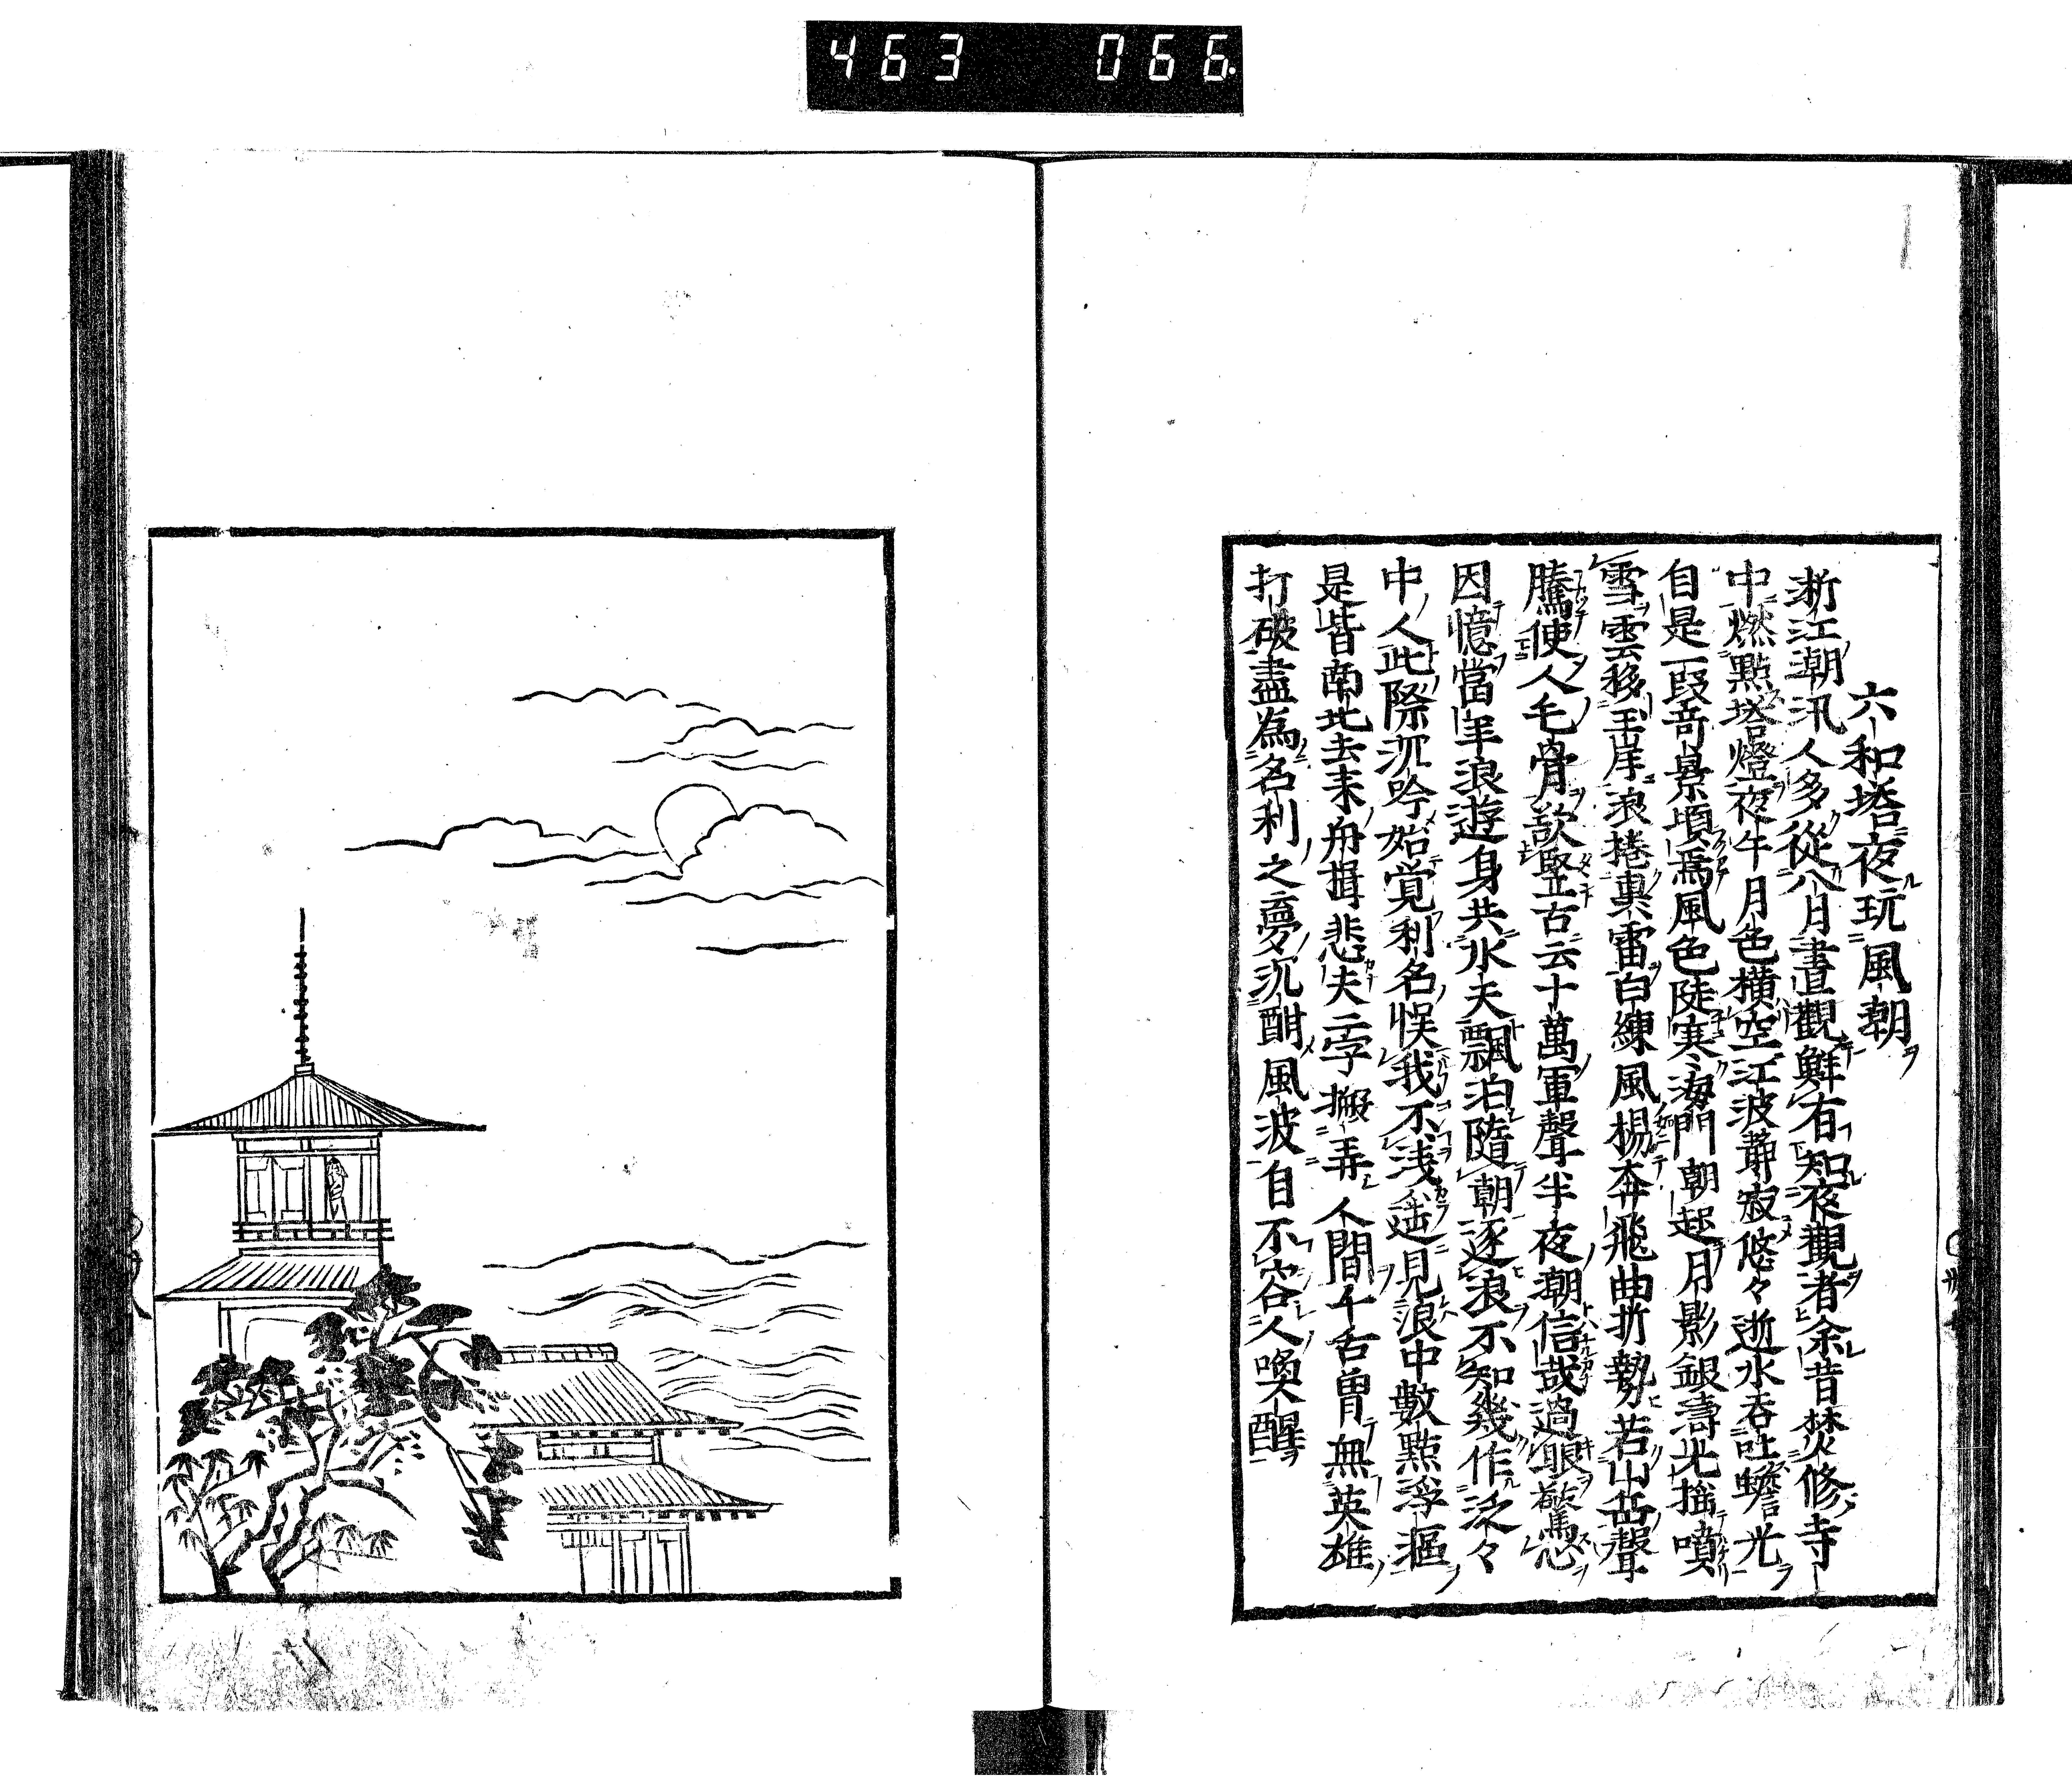 463 066
六和塔夜玩風朝
浙江潮汛人多從八月晝觀鮮有知夜觀者余昔焚修寺
中燃點塔燈夜午月色橫空江波靜寂悠々逝水吞吐蟾光
自是一段奇景頃焉風色陡寒海門朝起月影銀濤光搖噴
雪雲移玉岸浪捲輿雷白練風楊奔飛曲折勢若山岳聲
騰使人毛骨欲竪古云十萬軍聲半夜潮信哉過眼驚心
因憶當年浪遊身共水天飄泊隨朝逐浪不知幾作泛々
中人此際沉吟始覚利名悞我不浅遥見浪中數點浮漚
是皆南北去来舟揖悲夫二字搬弄人間千舌曽無英雄
打破盡為名利之夢沉酣風波自不容人喚醒